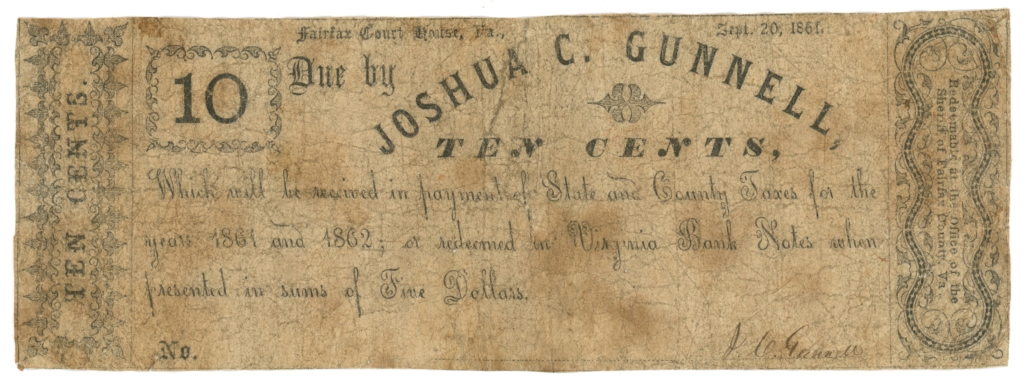 TEN CENTS.
Fairfax Court House, Va., Sept. 20, 1861.
10
Due by
JOSHUA C. GUNNELL,
TEN CENTS,
Which will be received in payment of State and County Taxes for the
years 1861 and 1862; or redeemed in Virginia Bank Notes when
presented in sums of Five Dollars.
No.
J. C. Gunnell
Redeemable at the Office of the
Sheriff of Fairfax County, Va.